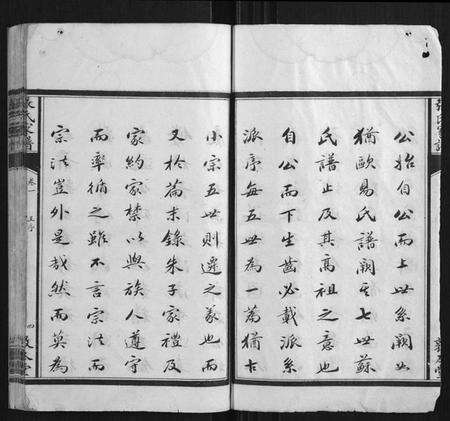 公始自公而上世系闕如
猶歐易氏譜闕其七世蘇
氏譜止及其高祖之意也
自公而下生齒必載派系
派序每五世為一篇猶古
小宗五世則遷之義也而
又於篇末錄朱子家禮及
家約家禁以與族人遵守
而率循之雖不言宗法而
宗法豈外是哉然而莫為
張氏家譜
卷一